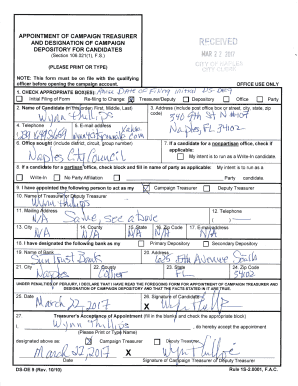 APPOINTMENT OF CAMPAIGN TREASURER
AND DESIGNATION OF CAMPAIGN
DEPOSITORY FOR CANDIDATES
(Section 106.021(1), F.S.)
(PLEASE PRINT OR TYPE)
NOTE: This form must be on file with the qualifying
officer before opening the campaign account.
RECEIVED
MAR 22 2017
CITY OF NAPLES
OFFICE USE ONLY
1. CHECK APPROPRIATE BOX(ES):
Initial Filing of Form Re-filing to Change: Treasurer/Deputy Depository Office Party
2. Name of Candidate (in this order: First, Middle, Last)
Wynn Phillips
3. Address (include post office box or street, city, state, zip code)
Naples, FL 34102
4. Telephone
5. E-mail address
6. Office sought (include district, circuit, group number)
Naples City Council
7. If a candidate for a nonpartisan office, check if applicable:
My intent is to run as a Write-In candidate.
8. If a candidate for a partisan office, check block and fill in name of party as applicable: My intent is to run as a
Write-In No Party Affiliation Party candidate.
9. I have appointed the following person to act as my Campaign Treasurer Deputy Treasurer
10. Name of Treasurer or Deputy Treasurer
Wynn Phillips
11. Mailing Address
Same, see above
12. Telephone
13. City
N/A
14. County
N/A
15. State
N/A
16. Zip Code
N/A
17. E-mail address
N/A
18. I have designated the following bank as my Primary Depository Secondary Depository
19. Name of Bank
Sun Trust Bank
20. Address
5th Avenue South
21. City
Naples
22. County
Collier
23. State
FL
24. Zip Code
34102
UNDER PENALTIES OF PERJURY, I DECLARE THAT I HAVE READ THE FOREGOING FORM FOR APPOINTMENT OF CAMPAIGN TREASURER AND
DESIGNATION OF CAMPAIGN DEPOSITORY AND THAT THE FACTS STATED IN IT ARE TRUE.
25. Date
March 22, 2017
26. Signature of Candidate
X
27. Treasurer's Acceptance of Appointment (fill in the blanks and check the appropriate block)
I, Wynn Phillips, do hereby accept the appointment
(Please Print or Type Name)
designated above as: Campaign Treasurer Deputy Treasurer.
March 22, 2017 X
Date Signature of Campaign Treasurer or Deputy Treasurer
DS-DE 9 (Rev. 10/10) Rule 1S-2.0001, F.A.C.